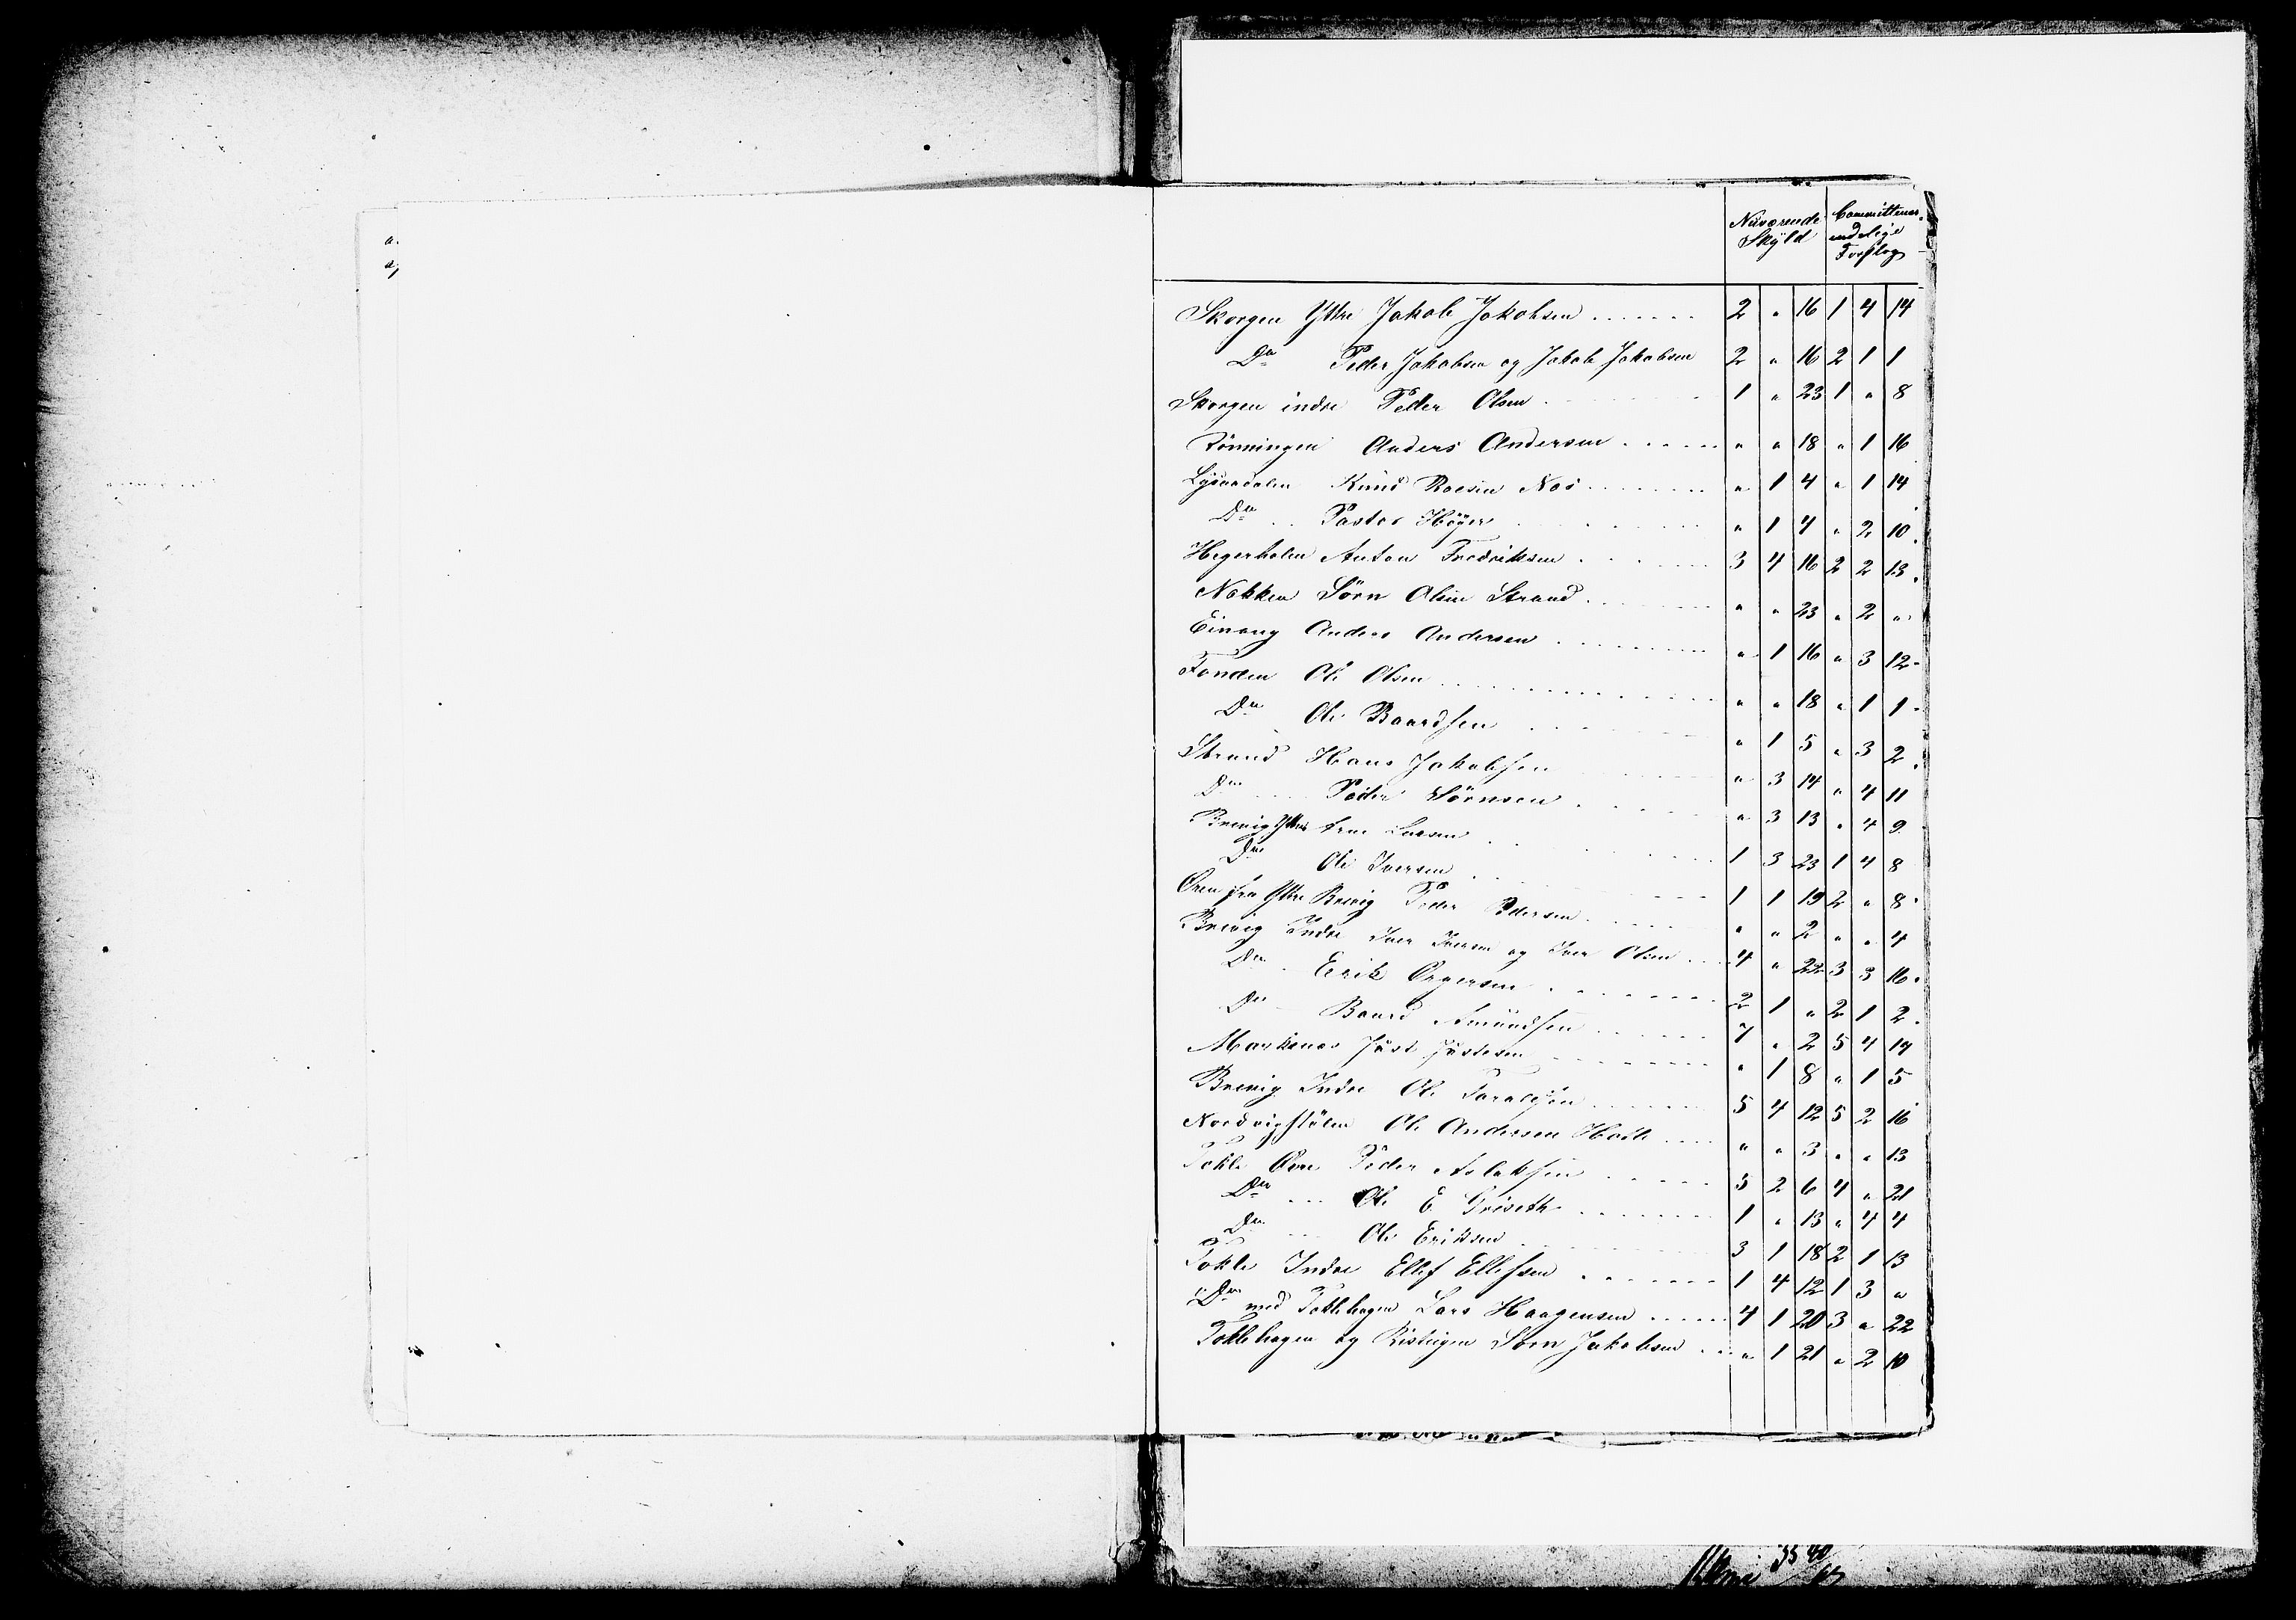 Nuværende Skyld
Committeens endelige Forslag
Skorgen Ytre Jakob Jakobsen 2 " 16 1 4 14
Do Peder Jakobsen og Jakob Jakobsen 2 " 16 2 1 1
Skorgen indre Peder Olsen 1 " 23 1 " 8
Rönningen Anders Andersen " " 18 " 1 16
Knud Roesen Nos " 1 4 " 1 14
Do Pastor Höyer " 1 4 " 2 10
Hegerholm Anton Fredriksen 3 4 16 2 2 13
Nakken Sörn Olsen Strand " " 23 " 2 "
Einang Anders Andersen " 1 16 " 3 12
Fonden Ole Olsen " " 18 " 1 1
Do Ole Baardsen " 1 5 " 3 2
Strand Hans Jakobsen " 3 14 " 4 11
Do Peder Sörnsen " 3 13 " 4 9
Brevig Ytre Arne Larsen 1 3 23 1 4 8
Do Ole Iversen 1 1 19 2 " 8
Øren fra Ytre Brevig Peder Pedersen " " 2 " " 4
Brevig Indre Iver Iversen og Iver Olsen 4 " 22 3 3 16
Do Erik Brgersen 2 1 " 2 1 2
Do Baard Amundsen 7 " 2 5 4 14
Markenes Just Justesen " 1 8 " 1 5
Brevig Indre Ole 5 4 12 5 2 16
Nordvigstölen Ole Andersen Hatle " " 3 " " 13
Tokle Øvre Peder Aslaksen 5 2 6 4 " 21
Do Ole E. Griseth 1 " 13 " 4 4
Do Ole Eriksen 3 1 18 2 1 13
Tokle Indre Ellef Ellefsen 1 4 12 1 3 "
Do med Toklehagen Lars Haagensen 4 1 20 3 " 22
Toklehagen og Risteigen Sörn Jakobsen " 1 21 " 2 10